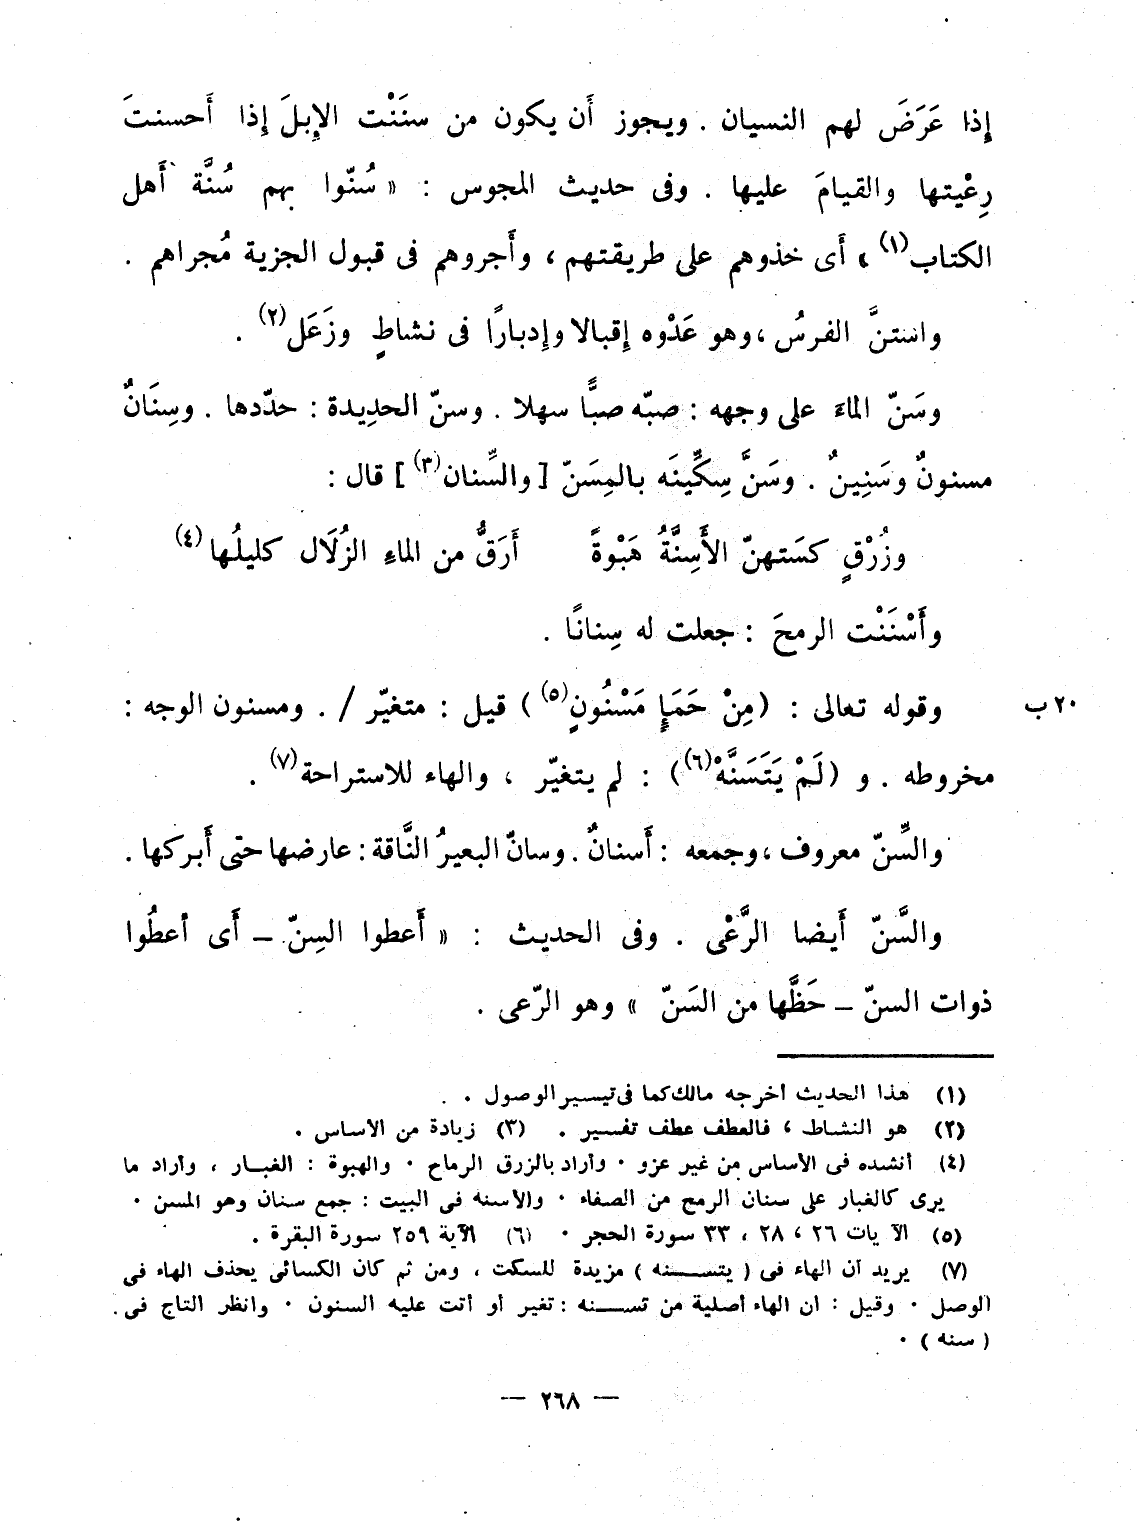 إذا عَرَضَ لهم النسيان . ويجوز أَن يكون من سنَنْت الإِبلَ إِذا أَحسنتَ
رِعْيتها والقيامَ عليها . وفى حديث المجوس : « سُنّوا بهم سُنَّة أَهل
الكتاب(١) » أَى خذوهم على طريقتهم ، وأَجروهم فى قبول الجزية مُجراهم .
واستنَّ الفرسُ ، وهو عَدْوه إِقبالا وإِدبارًا فى نشاطٍ وزَعَل(٢) .
وسَنّ الماءَ على وجهه : صبّه صبًّا سهلا . وسنّ الحدِيدة : حدّدها . وسِنَانٌ
مسنونٌ وسَنِينٌ . وسَنَّ سِكِّينَه بالمِسَنّ [ والسِّنان(٣) ] قال :
وزُرْقٍ كسَتهنّ الأَسِنَّةُ هَبْوةً أَرَقُّ من الماءِ الزُلَال كليلُها(٤)
وأَسْنَنْت الرمحَ : جعلت له سِنانًا .
وقوله تعالى : (مِنْ حَمَإٍ مَسْنُونٍ(٥) ) قيل : متغيّر / . ومسنون الوجه : ٢٠ ب
مخروطه . و (لَمْ يَتَسَنَّهْ(٦) ) : لم يتغيّر ، والهاء للاستراحة(٧) .
والسِّنّ معروف ، وجمعه : أَسنانٌ . وسانّ البعيرُ النَّاقة : عارضها حتى أَبركها .
والسَّنّ أَيضا الرَّعْى . وفى الحديث : « أَعطوا السِنّ – أَى أعطُوا
ذوات السنّ – حَظَّها من السَنّ » وهو الرّعى .
(١) هذا الحديث أخرجه مالك كما فى تيسير الوصول .
(٢) هو النشاط ، فالعطف عطف تفسير . (٣) زيادة من الاساس .
(٤) أنشده فى الأساس من غير عزو . وأراد بالزرق الرماح . والهبوة : الغبار ، وأراد ما
يرى كالغبار على سنان الرمح من الصفاء . والأسنة فى البيت : جمع سنان وهو المسن .
(٥) الآيات ٢٦ ، ٢٨ ، ٣٣ سورة الحجر . (٦) الآية ٢٥٩ سورة البقرة .
(٧) يريد أن الهاء فى ( يتسنه ) مزيدة للسكت ، ومن ثم كان الكسائى يحذف الهاء فى
الوصل . وقيل : ان الهاء أصلية من تسنه : تغير أو أتت عليه السنون . وانظر التاج فى
( سنه ) .
— ٢٦٨ —